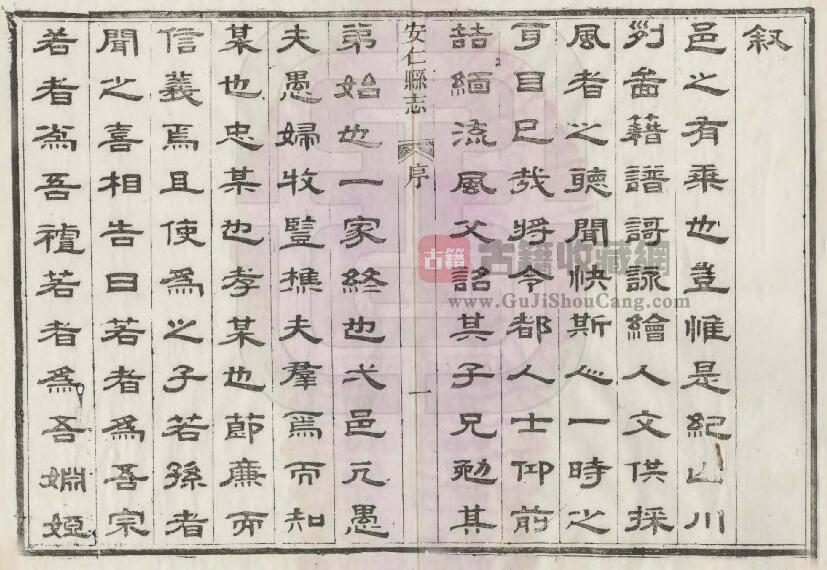 叙
邑之有乘也豈惟是紀山川
列啚籍譜謌詠繪人文供採
風者之聽聞快斯心一時之
耳目已哉將令都人士仰前
喆緬流風父詔其子兄勉其
安仁縣志 序 一
弟始也一家終也弌邑凡愚
夫愚婦牧豎樵夫羣焉而知
某也忠某也孝某也節廉而
信義焉且使爲之子若孫者
聞之喜相告曰若者爲吾宗
若者爲吾若者爲吾婣婭
古籍 古籍收藏網
www.GuJiShouCang.com